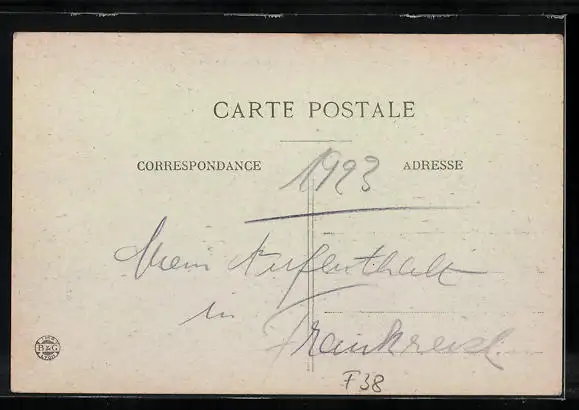 CARTE POSTALE
CORRESPONDANCE
1923
ADRESSE
Mein Aufenthalt
in
Frankreich
F38
B&G
LYON